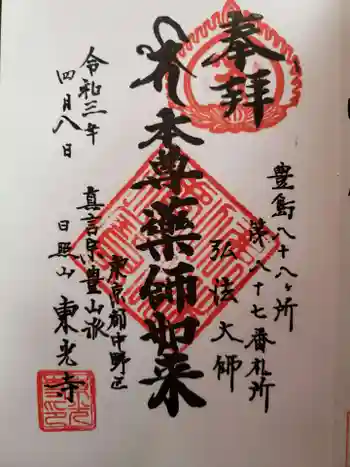 奉拝
豊島八十八ヶ所
第八十七番札所
弘法大師
本尊薬師如来
東京都中野区
真言宗豊山派
日照山 東光寺
令和三年
四月八日